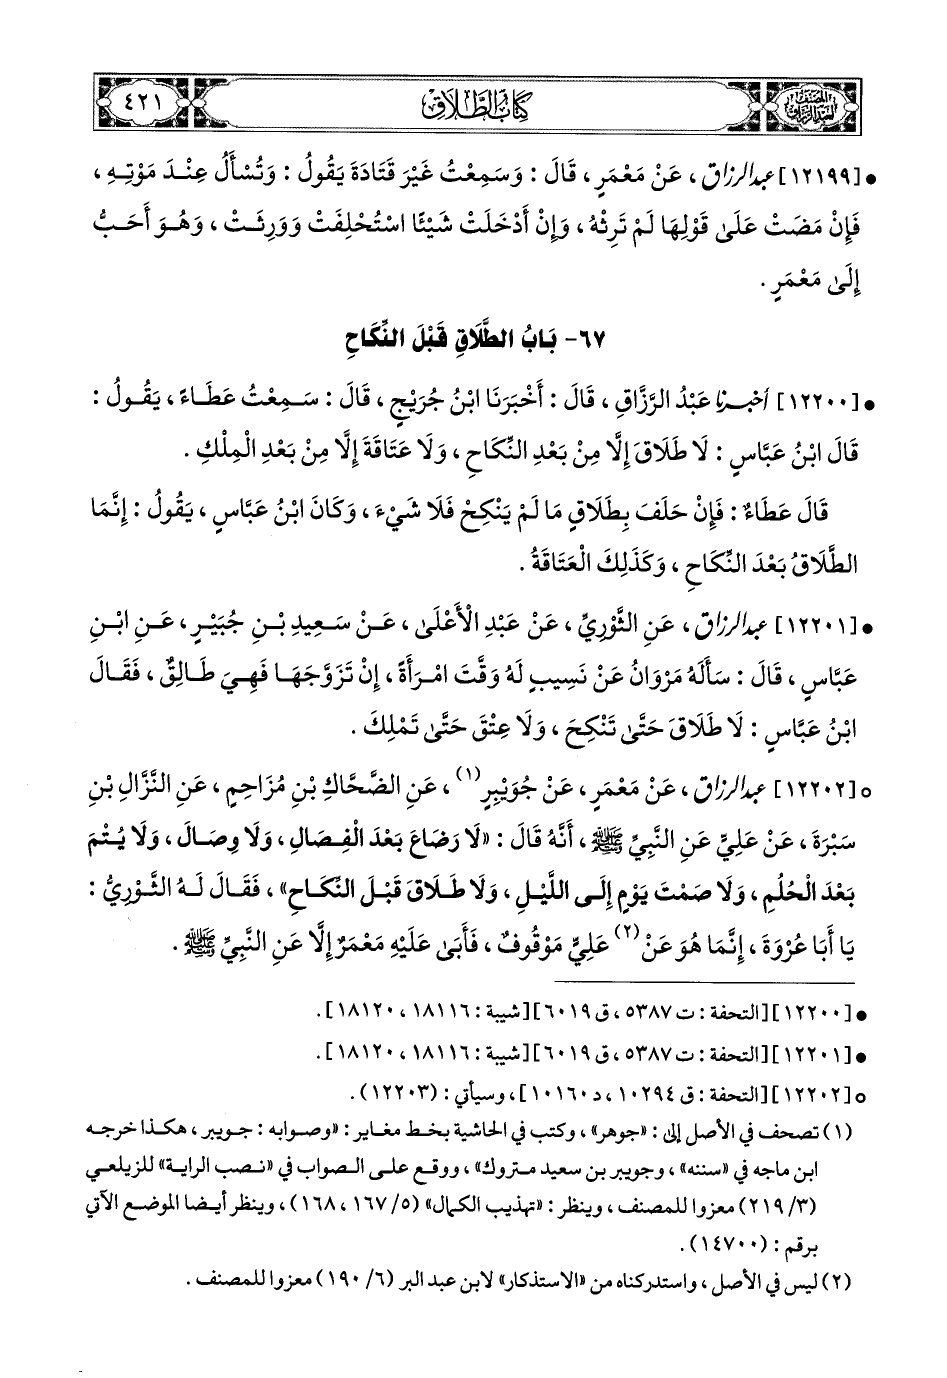 المصنف للإمام عبد الرزاق كتاب الطلاق ٤٢١
• [١٢١٩٩] عبد الرزاق، عَنْ مَعْمَرٍ، قَالَ: وَسَمِعْتُ غَيْرَ قَتَادَةَ يَقُولُ: وَتُسْأَلُ عِنْدَ مَوْتِهِ،
فَإِنْ مَضَتْ عَلَى قَوْلِهَا لَمْ تَرِثْهُ، وَإِنْ أَدْخَلَتْ شَيْئًا اسْتُحْلِفَتْ وَوَرِثَتْ، وَهُوَ أَحَبُّ
إِلَى مَعْمَرٍ.
٦٧- بَابُ الطَّلَاقِ قَبْلَ النِّكَاحِ
• [١٢٢٠٠] أخبرنا عَبْدُ الرَّزَّاقِ، قَالَ: أَخْبَرَنَا ابْنُ جُرَيْجٍ، قَالَ: سَمِعْتُ عَطَاءً، يَقُولُ:
قَالَ ابْنُ عَبَّاسٍ: لَا طَلَاقَ إِلَّا مِنْ بَعْدِ النِّكَاحِ، وَلَا عَتَاقَةَ إِلَّا مِنْ بَعْدِ الْمِلْكِ.
قَالَ عَطَاءٌ: فَإِنْ حَلَفَ بِطَلَاقِ مَا لَمْ يَنْكِحْ فَلَا شَيْءَ، وَكَانَ ابْنُ عَبَّاسٍ، يَقُولُ: إِنَّمَا
الطَّلَاقُ بَعْدَ النِّكَاحِ، وَكَذَلِكَ الْعَتَاقَةُ.
• [١٢٢٠١] عبد الرزاق، عَنِ الثَّوْرِيِّ، عَنْ عَبْدِ الْأَعْلَى، عَنْ سَعِيدِ بْنِ جُبَيْرٍ، عَنِ ابْنِ
عَبَّاسٍ، قَالَ: سَأَلَهُ مَرْوَانُ عَنْ نَسِيبٍ لَهُ وَقَّتَ امْرَأَةً، إِنْ تَزَوَّجَهَا فَهِيَ طَالِقٌ، فَقَالَ
ابْنُ عَبَّاسٍ: لَا طَلَاقَ حَتَّى تَنْكِحَ، وَلَا عِتْقَ حَتَّى تَمْلِكَ.
○ [١٢٢٠٢] عبد الرزاق، عَنْ مَعْمَرٍ، عَنْ جُوَيْبِرٍ(١)، عَنِ الضَّحَّاكِ بْنِ مُزَاحِمٍ، عَنِ النَّزَّالِ بْنِ
سَبْرَةَ، عَنْ عَلِيٍّ عَنِ النَّبِيِّ ﷺ، أَنَّهُ قَالَ: «لَا رَضَاعَ بَعْدَ الْفِصَالِ، وَلَا وِصَالَ، وَلَا يُتْمَ
بَعْدَ الْحُلُمِ، وَلَا صَمْتَ يَوْمٍ إِلَى اللَّيْلِ، وَلَا طَلَاقَ قَبْلَ النِّكَاحِ»، فَقَالَ لَهُ الثَّوْرِيُّ:
يَا أَبَا عُرْوَةَ، إِنَّمَا هُوَ عَنْ(٢) عَلِيٍّ مَوْقُوفٌ، فَأَبَى عَلَيْهِ مَعْمَرٌ إِلَّا عَنِ النَّبِيِّ ﷺ.
• [١٢٢٠٠] [التحفة: ت ٥٣٨٧، ق ٦٠١٩] [شيبة: ١٨١١٦، ١٨١٢٠].
• [١٢٢٠١] [التحفة: ت ٥٣٨٧، ق ٦٠١٩] [شيبة: ١٨١١٦، ١٨١٢٠].
○ [١٢٢٠٢] [التحفة: ق ١٠٢٩٤، د ١٠١٦٠]، وسيأتي: (١٢٢٠٣).
(١) تصحف في الأصل إلى: «جوهر»، وكتب في الحاشية بخط مغاير: «وصوابه: جويبر، هكذا خرجه
ابن ماجه في «سننه»، وجويبر بن سعيد متروك»، ووقع على الصواب في «نصب الراية» للزيلعي
(٣/ ٢١٩) معزوا للمصنف، وينظر: «تهذيب الكمال» (٥/ ١٦٧، ١٦٨)، وينظر أيضا الموضع الآتي
برقم: (١٤٧٠٠).
(٢) ليس في الأصل، واستدركناه من «الاستذكار» لابن عبد البر (٦/ ١٩٠) معزوا للمصنف.